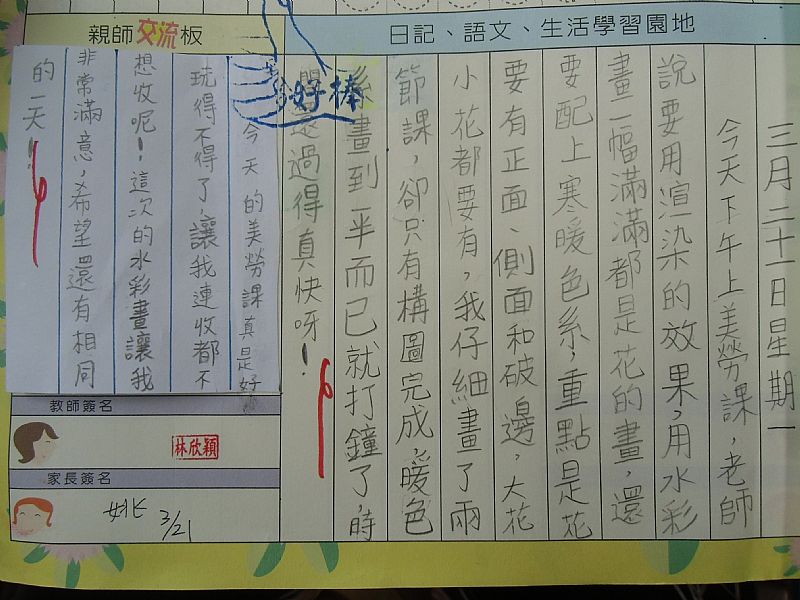 親師交流板
日記、語文、生活學習園地
三月二十一日星期一
今天下午上美勞課，老師
說要用渲染的效果，用水彩
畫一幅滿滿都是花的畫，還
要配上寒暖色系，重點是花
要有正面、側面和破邊，大花
小花都要有，我仔細畫了兩
節課，卻只有構圖完成，暖色
系畫到一半而已就打鐘了，時
間還過得真快呀！
好棒
今天的美勞課真是好
玩得不得了，讓我連收都不
想收呢！這次的水彩畫讓我
非常滿意，希望還有相同
的一天！
教師簽名
林欣穎
家長簽名
3/21